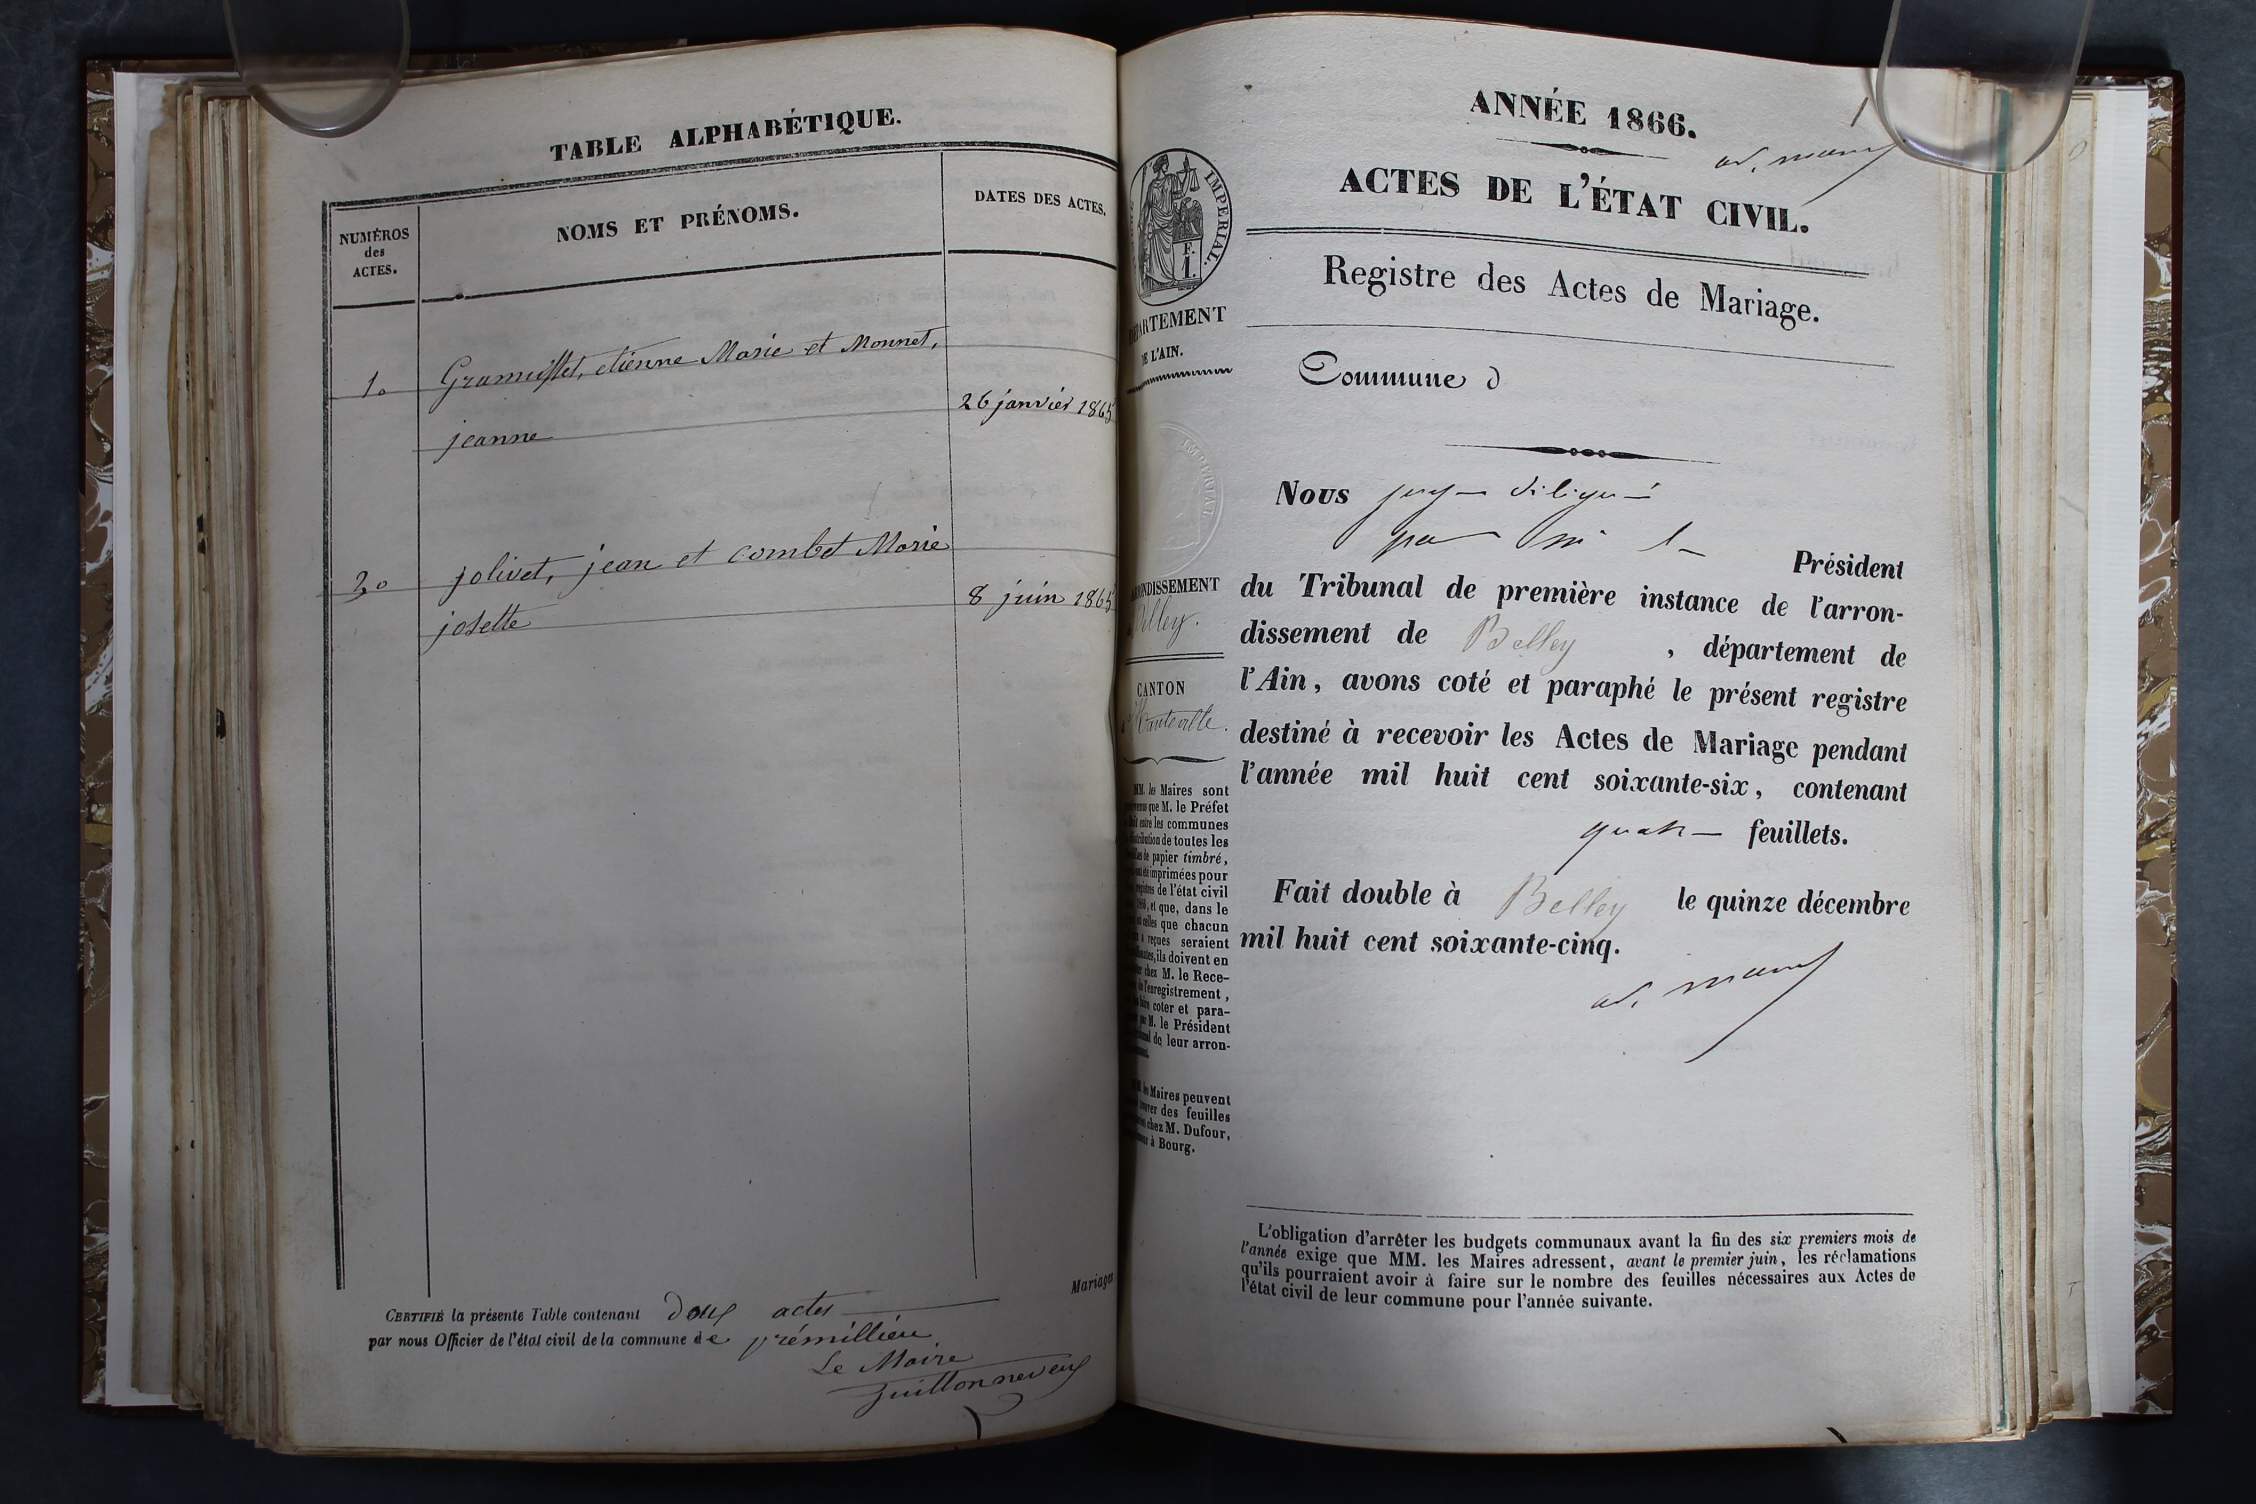 TABLE ALPHABÉTIQUE.
NUMÉROS
des
ACTES.
NOMS ET PRÉNOMS.
DATES DES ACTES.
1o
étienne Marie et Monnet,
jeanne
26 janvier 1865
2o
jolivet, jean et combet Marie
josette
8 juin 1865
Mariages
CERTIFIÉ la présente Table contenant deux actes
par nous Officier de l'état civil de la commune de prémillieu
Le Maire
Guillonneveux
ANNÉE 1866.
1
ACTES DE L'ÉTAT CIVIL.
Registre des Actes de Mariage.
IMPERIAL.
DÉPARTEMENT
DE L'AIN.
Commune d
IMPERIAL
Nous juge délégué
par mr le Président
du Tribunal de première instance de l'arron-
dissement de Belley, département de
l'Ain, avons coté et paraphé le présent registre
destiné à recevoir les Actes de Mariage pendant
l'année mil huit cent soixante-six, contenant
quatre feuillets.
Fait double à Belley le quinze décembre
mil huit cent soixante-cinq.
ARRONDISSEMENT
Belley.
CANTON
d'Hauteville.
MM. les Maires sont
que M. le Préfet
entre les communes
distribution de toutes les
de papier timbré,
été imprimées pour
registres de l'état civil
et que, dans le
celles que chacun
a reçues seraient
ils doivent en
chez M. le Rece-
de l'enregistrement,
faire coter et para-
par M. le Président
de leur arron-
les Maires peuvent
des feuilles
chez M. Dufour,
à Bourg.
L'obligation d'arrêter les budgets communaux avant la fin des six premiers mois de
l'année exige que MM. les Maires adressent, avant le premier juin, les réclamations
qu'ils pourraient avoir à faire sur le nombre des feuilles nécessaires aux Actes de
l'état civil de leur commune pour l'année suivante.